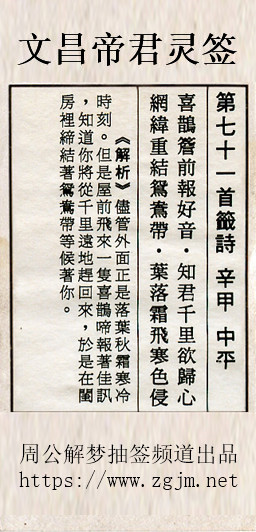 文昌帝君灵签
第七十一首籤詩 辛甲 中平
喜鵲簷前報好音‧知君千里欲歸心
網緯重結鴛鴦帶‧葉落霜飛寒色侵
《解析》儘管外面正是落葉秋霜寒冷
時刻。但是屋前飛來一隻喜鵲啼報著佳訊
，知道你將從千里遠地趕回來，於是在閨
房裡締結著鴛鴦帶等候著你。
周公解梦抽签频道出品
https://www.zgjm.net